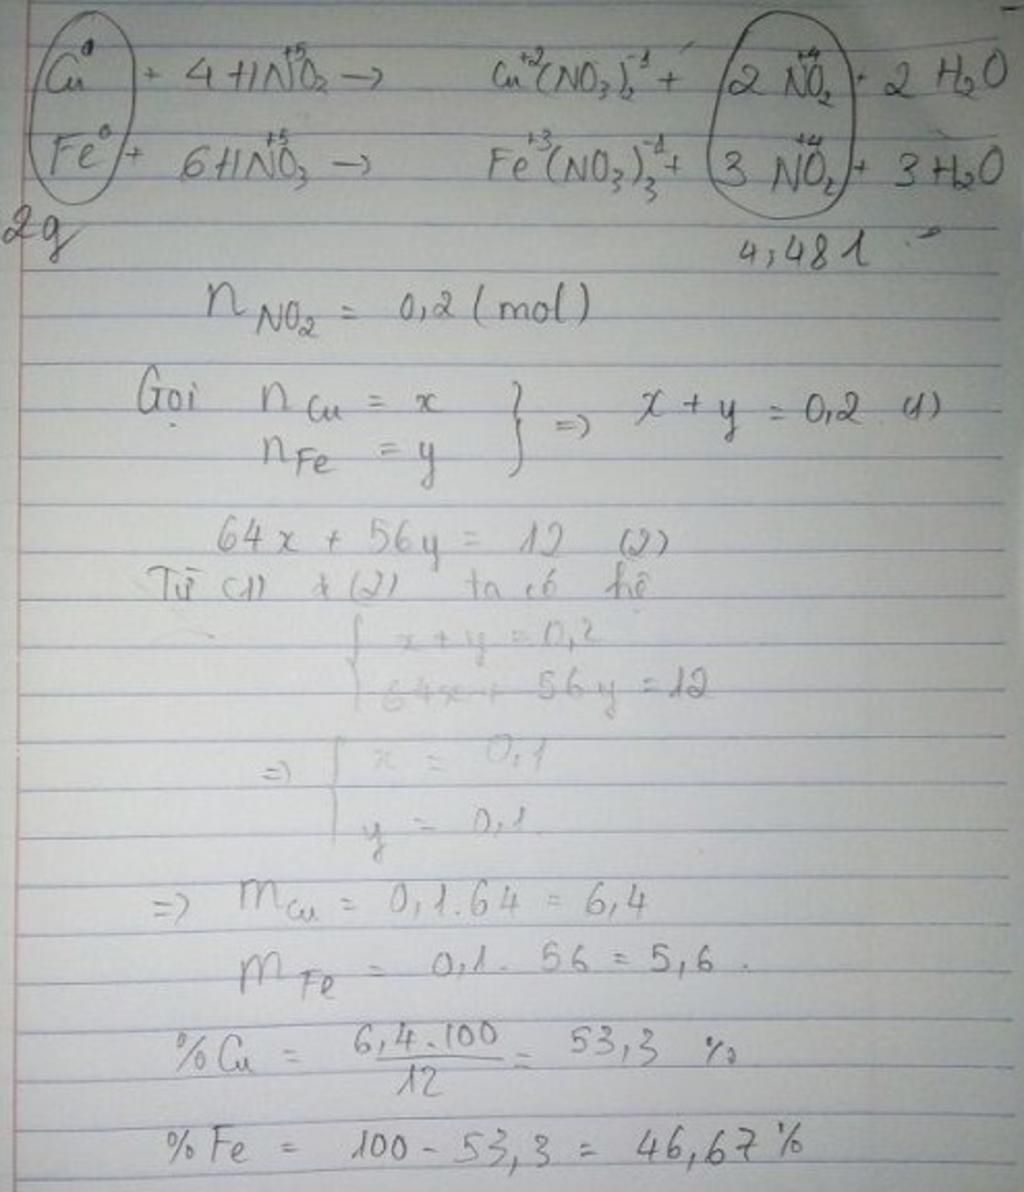 Cu⁰ + 4 HN⁺⁵O₂ → Cu⁺²(NO₃)₂⁻¹ + 2 N⁺⁴O₂ + 2 H₂O
Fe⁰ + 6HN⁺⁵O₃ → Fe⁺³(NO₃)₃⁻¹ + 3 N⁺⁴O₂ + 3 H₂O
2g 4,48 l
n NO₂ = 0,2 (mol)
Gọi n Cu = x } => x + y = 0,2 (1)
n Fe = y
64x + 56y = 12 (2)
Từ (1) + (2) ta có hệ
{ x + y = 0,2
64x + 56y = 12
=> { x = 0,1
y = 0,1
=> m Cu = 0,1.64 = 6,4
m Fe = 0,1. 56 = 5,6.
%Cu = 6,4.100/12 = 53,3 %
%Fe = 100 - 53,3 = 46,67%